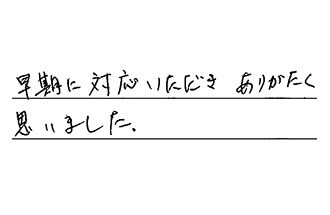 早期に対応いただき ありがたく
思いました.